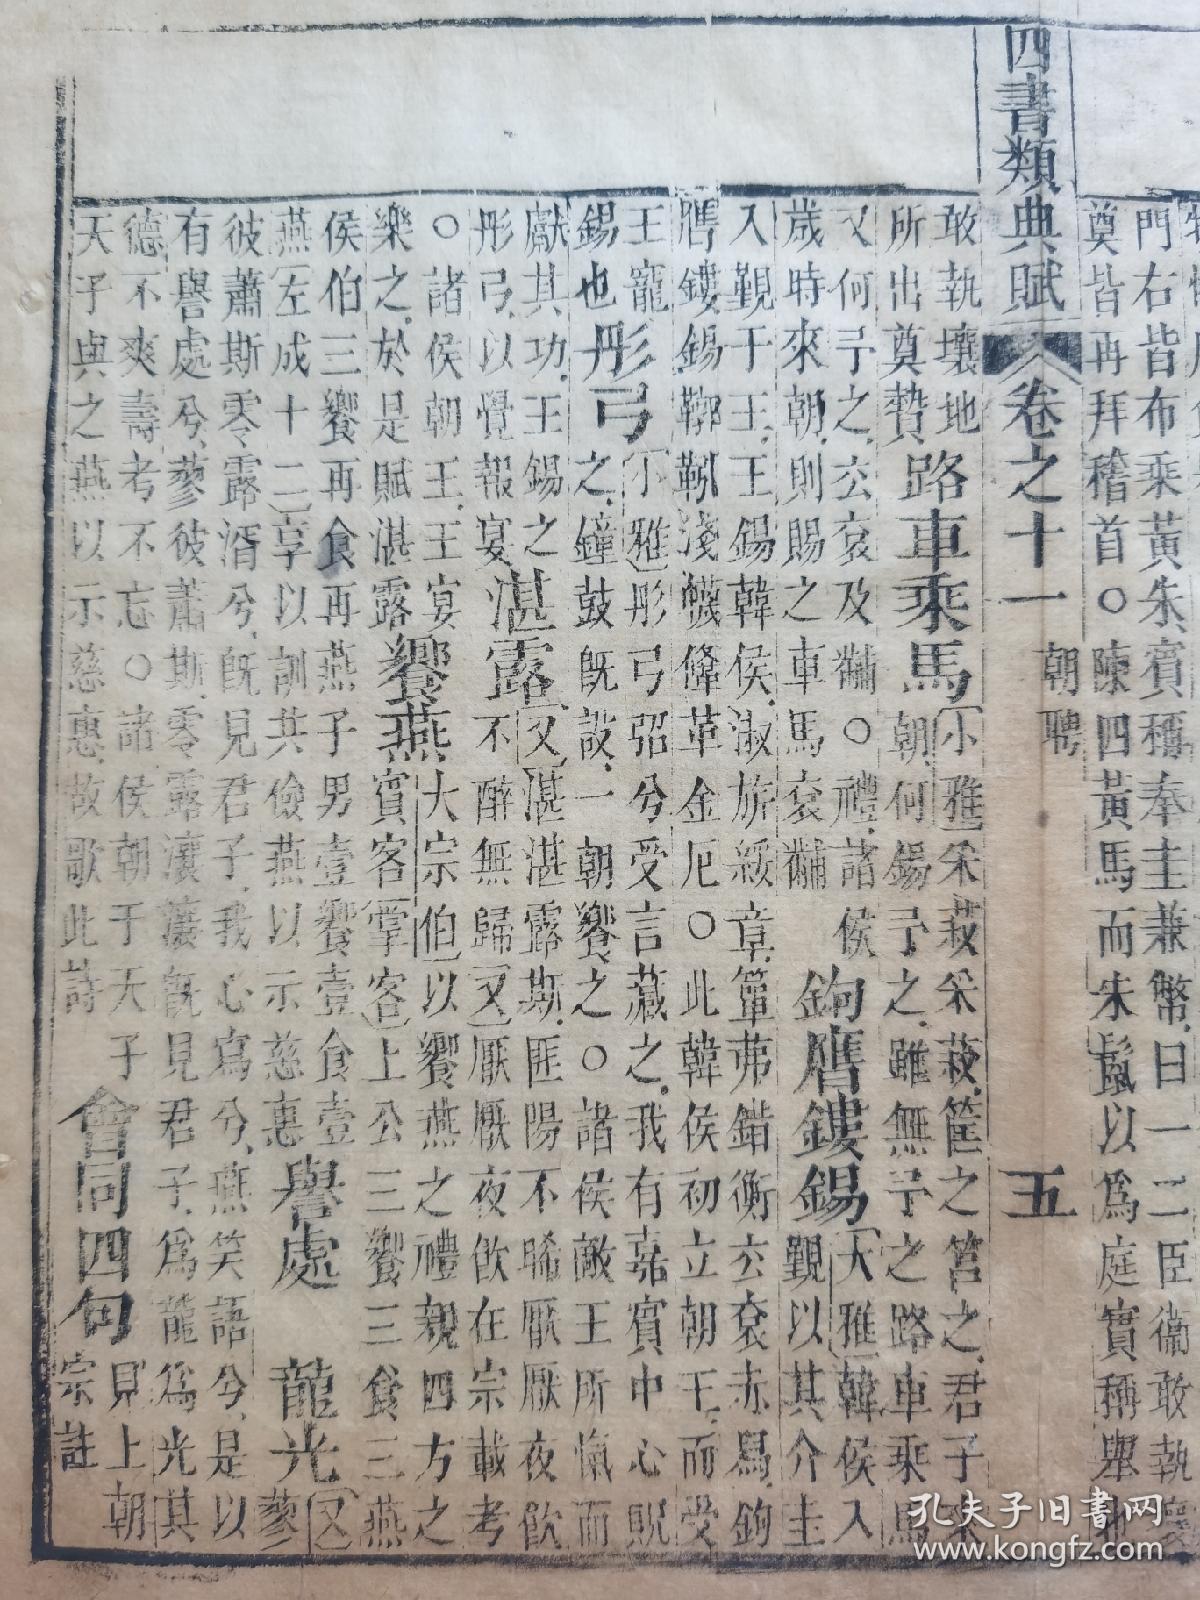 門右皆布乘黃朱賓稱奉圭兼幣曰一二臣衞敢執壤
奠皆再拜稽首○陳四黃馬而朱鬣以爲庭實稱舉也
四書類典賦 卷之十一 朝聘 五
敢執壤地
所出奠贄
路車乘馬
小雅采菽采菽筐之筥之君子來
朝何錫予之雖無予之路車乘馬
又何予之玄袞及黼○禮諸侯
歲時來朝則賜之車馬袞黼
鉤膺鏤錫
大雅韓侯入
覲以其介圭
入覲于王王錫韓侯淑旂綏章簟茀錯衡玄袞赤舄鉤
膺鏤錫鞹鞃淺幭鞗革金厄○此韓侯初立朝王而受
王寵
錫也
彤弓
小雅彤弓弨兮受言藏之我有嘉賓中心貺
之鐘鼓既設一朝饗之○諸侯敵王所愾而
獻其功王錫之
彤弓以覺報宴
湛露
又湛湛露斯匪陽不晞厭厭夜飲
不醉無歸又厭厭夜飲在宗載考
○諸侯朝王王宴
樂之於是賦湛露
饗燕
大宗伯以饗燕之禮親四方之
賓客掌客上公三饗三食三燕
侯伯三饗再食再燕子男壹饗壹食壹
燕左成十二享以訓共儉燕以示慈惠
譽處
龍光
又
蓼
彼蕭斯零露湑兮既見君子我心寫兮燕笑語兮是以
有譽處兮蓼彼蕭斯零露瀼瀼既見君子爲龍爲光其
德不爽壽考不忘○諸侯朝于天子
天子與之燕以示慈惠故歌此詩
會同四句
見上朝
宗註
孔夫子旧书网
www.kongfz.com